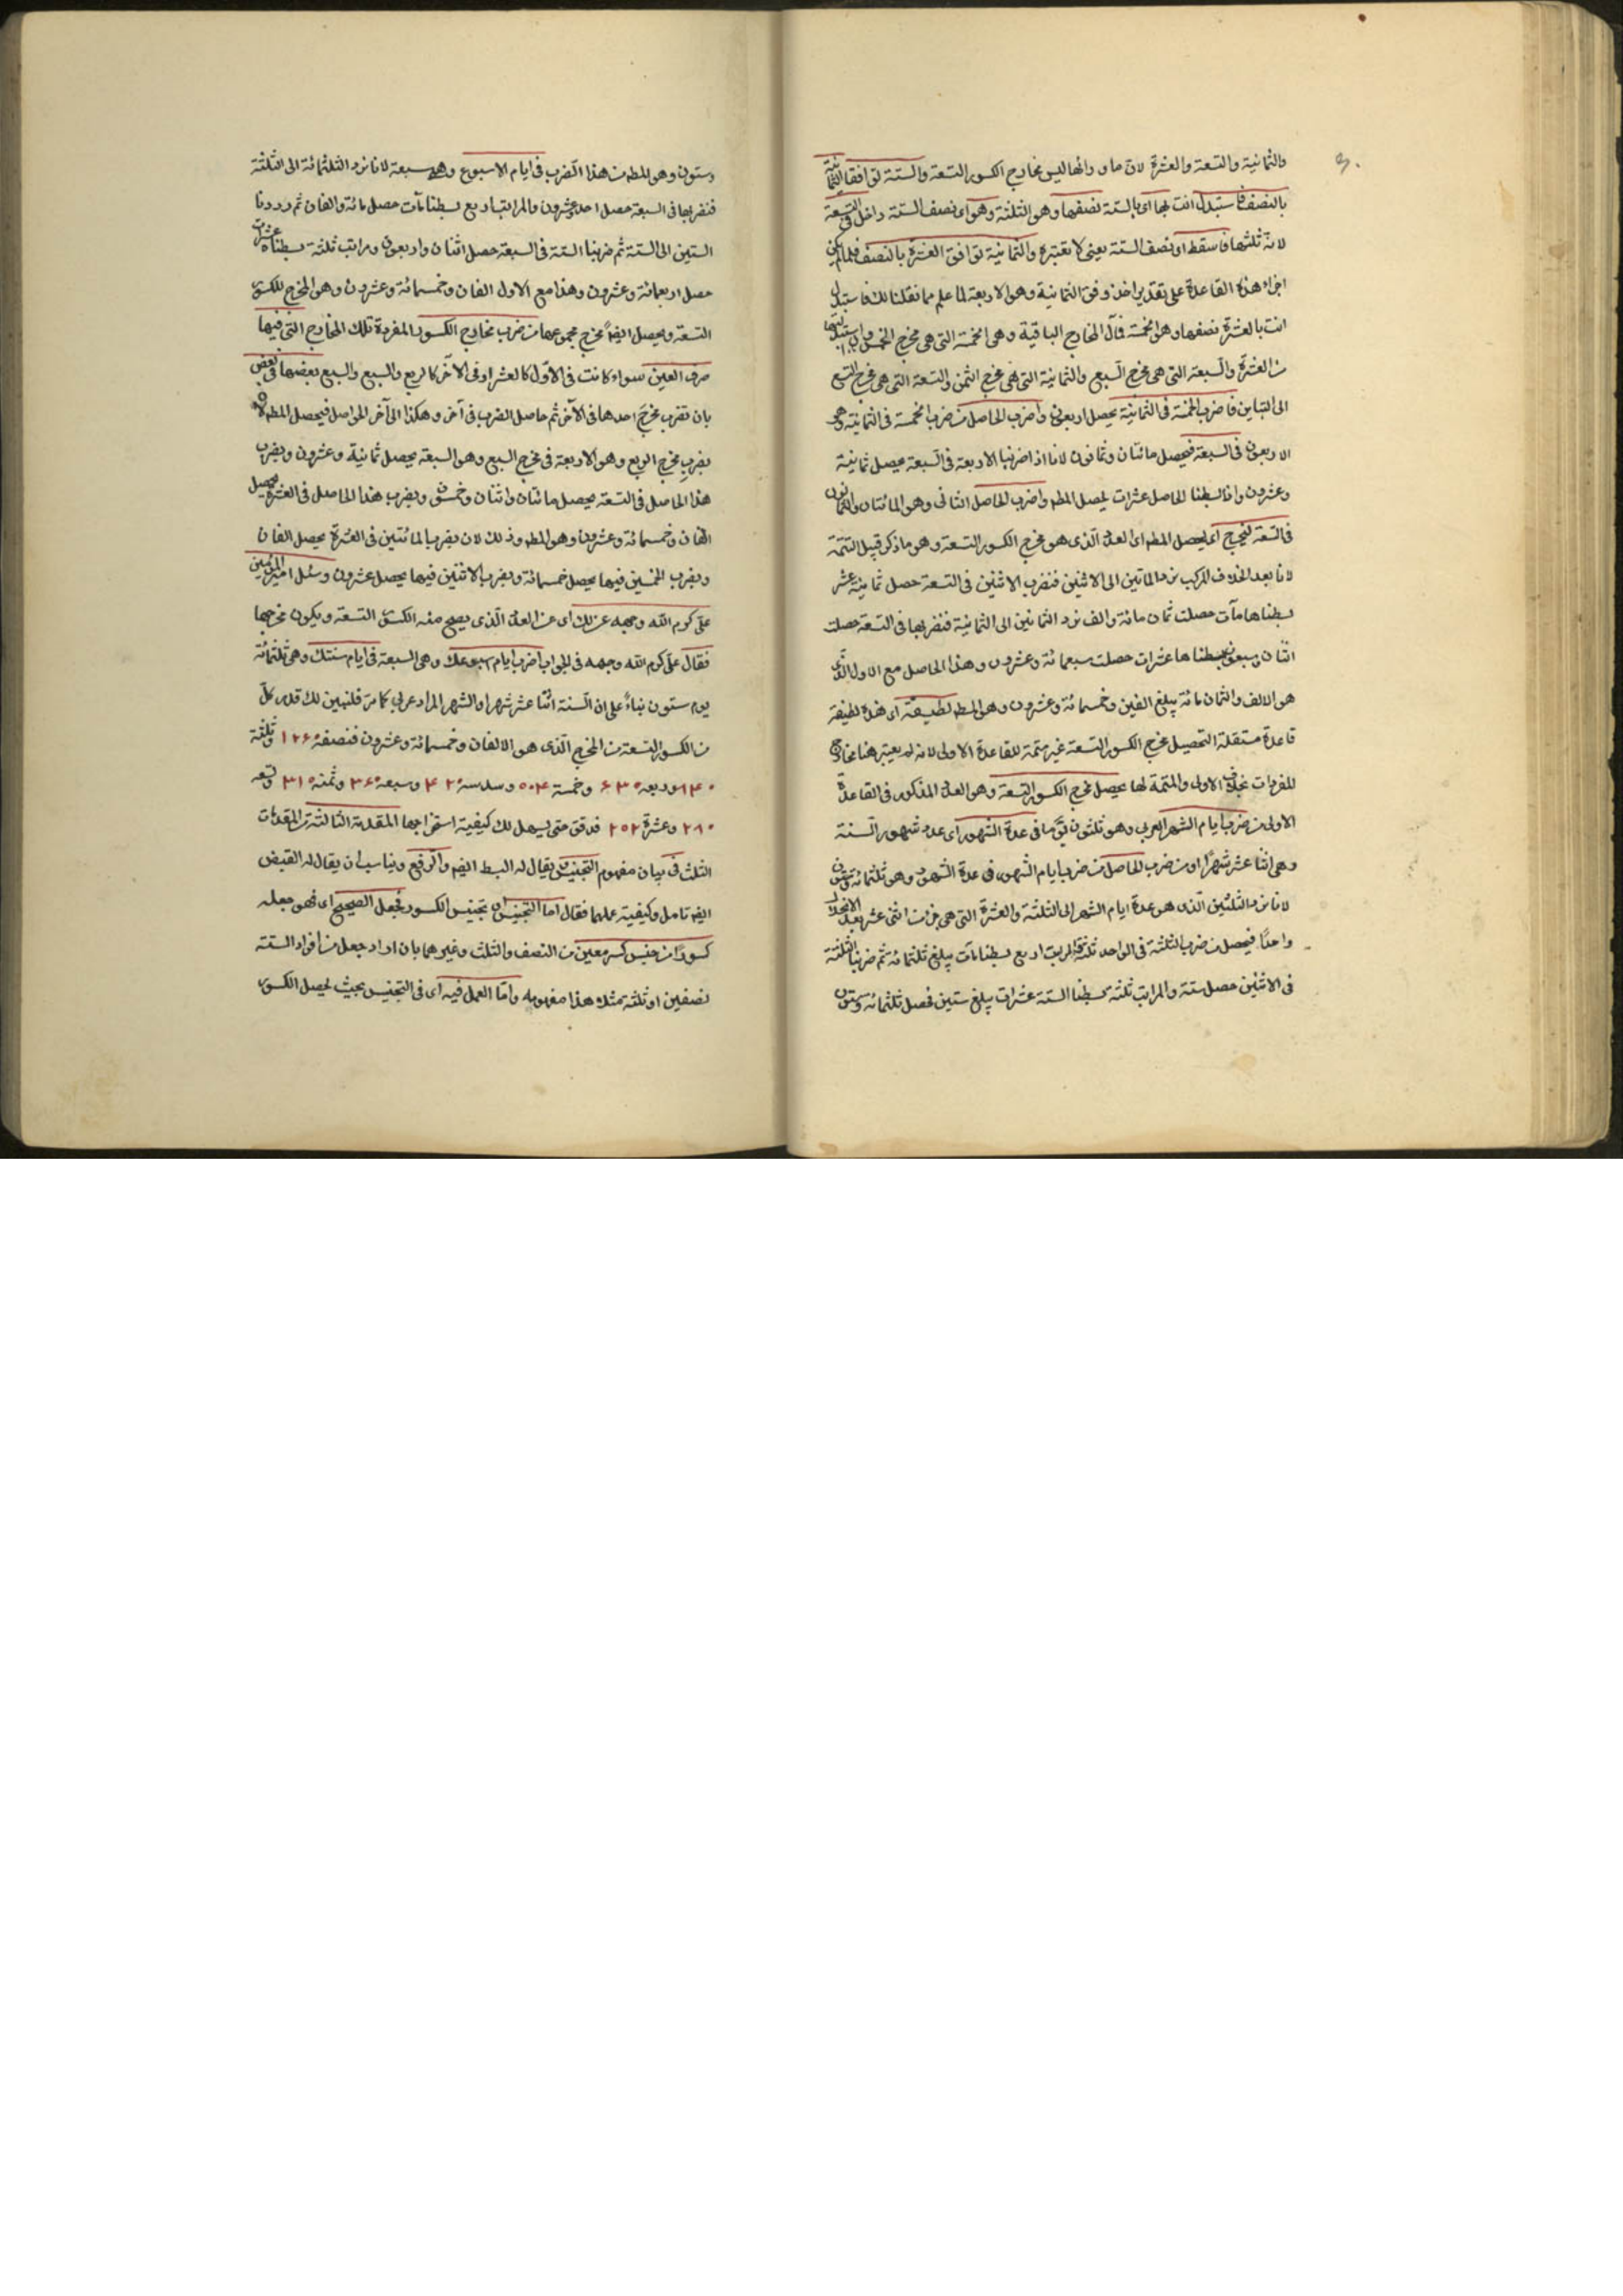 والثمانية والتسعة والعشرة لان ما وراءها ليس مخارج الكسور التسعة والستة توافق الثمانية
بالنصف فاستبدل انت بها اى بالستة نصفها وهو الثلثة وهو اى نصف الستة داخل فى التسعة
لانه ثلثها فاسقط اى نصف الستة يعنى لا تعتبره والثمانية توافق العشرة بالنصف فلما لم يكن
اجراء هذه القاعدة على تقدير اخذ وفق الثمانية وهو الاربعة لما علم مما نقلنا لك فاستبدل
انت بالعشرة نصفها وهو الخمسة فآل المخارج الباقية وهى الخمسة التى هى مخرج الخمس
من العشرة والسبعة التى هى مخرج السبع والثمانية التى هى مخرج الثمن والتسعة التى هى مخرج التسع
الى التباين فاضرب الخمسة فى الثمانية يحصل اربعون واضرب الحاصل من ضرب الخمسة فى الثمانية وهو
الاربعون فى السبعة فيحصل مائتان وثمانون لانا اذا ضربنا الاربعة فى السبعة يحصل ثمانية
وعشرون واذا بسطنا الحاصل عشرات يحصل المط واضرب الحاصل الثانى وهو المائتان والثمانون
فى التسعة ليخرج اى ليحصل المط اى العدد الذى هو مخرج الكسور التسعة وهو ما ذكر قبيل التتمة
لانا بعد انحلاف المركب نرد المأتين الى الاثنين فنضرب الاثنين فى التسعة حصل ثمانية عشر
بسطناها مآت حصلت ثمان مائة والف نرد الثمانين الى الثمانية فنضربها فى التسعة حصلت
اثنان وسبعون بسطناها عشرات حصلت سبعمائة وعشرون وهذا الحاصل مع الاول الذى
هو الالف والثمان مائة يبلغ الفين وخمسمائة وعشرون وهو المط لطيفة اى هذه لطيفة
قاعدة مستقلة لتحصيل مخرج الكسور التسعة غير متمة للقاعدة الاولى لانه لم يعتبر هنا مخارج
المفردات بخلاف الاولى والمتمة لها يحصل مخرج الكسور التسعة وهو العدد المذكور فى القاعدة
الاولى من ضرب ايام الشهر العربى وهو ثلثون يوما فى عدة الشهور اى عدد شهور السنة
وهى اثنا عشر شهرا او من ضرب الحاصل من ضرب ايام الشهر فى عدة الشهور وهو ثلثمائة وستون
لانا نرد الثلثين الذى هو عدة ايام الشهر الى الثلثة والعشرة التى هى جزء من اثنى عشر بعد الانحلال
واحدا فيحصل من ضرب الثلثة فى الواحد ثلثة والمراتب اربع بسطنا مآت يبلغ ثلثمائة ثم ضربنا الثلثة
فى الاثنين حصل ستة والمراتب ثلثة بسطنا الستة عشرات يبلغ ستين فحصل ثلثمائة وستون
وستون وهو المط من هذا الضرب فى ايام الاسبوع وهى سبعة لانا نرد الثلثمائة الى الثلثة
فنضربها فى السبعة حصل احد وعشرون والمراتب اربع بسطنا مآت حصل مائة والفان ثم رددنا
الستين الى الستة ثم ضربنا الستة فى السبعة حصل اثنان واربعون ومراتب ثلثة بسطناه عشرات
حصل اربعمائة وعشرون وهذا مع الاول الفان وخمسمائة وعشرون وهو المخرج للكسور
التسعة ويحصل ايضا مخرج مجموعها من ضرب مخارج الكسور المفردة تلك المخارج التى فيها
حرف العين سواء كانت فى الاول كالعشر او فى الآخر كالربع والسبع والتسع بعضها فى بعض
بان تضرب مخرج احدها فى الآخر ثم حاصل الضرب فى آخر وهكذا الى آخر الحواصل فيحصل المط لانه
يضرب مخرج الربع وهو الاربعة فى مخرج السبع وهو السبعة يحصل ثمانية وعشرون ويضرب
هذا الحاصل فى التسعة يحصل مائتان واثنان وخمسون ويضرب هذا الحاصل فى العشرة يحصل
الفان وخمسمائة وعشرون وهو المط وذلك لان يضرب المائتين فى العشرة يحصل الفان
ويضرب الخمسين فيها يحصل خمسمائة ويضرب الاثنين فيها يحصل عشرون وسئل امير المؤمنين
على كرم الله وجهه عن ذلك اى عن العدد الذى يصح منه الكسور التسعة ويكون مخرجها
فقال على كرم الله وجهه فى الجواب اضرب ايام اسبوعك وهى السبعة فى ايام سنتك وهى ثلثمائة
يوم ستون بناء على ان السنة اثنا عشر شهرا والشهر المراد عربى كما مر فلنبين لك قدر كل
من الكسور التسعة من المخرج الذى هو الالفان وخمسمائة وعشرون فنصفه ١٢۶٠ وثلثه
٨۴٠ وربعه ۶٣٠ وخمسة ۵٠۴ وسدسه ۴٢٠ وسبعه ٣۶٠ وثمنه ٣١۵ وتسعه
٢٨٠ وعشرة ٢۵٢ فدقق حتى يسهل لك كيفية استخراجها المقدمة الثالثة من المقدمات
الثلث فى بيان مفهوم التجنيس يقال له البسط ايضا والرفع ويناسب ان يقال له القبض
ايضا تامل وكيفية علمها فقال اما التجنيس اى تجنيس الكسور فجعل الصحيح اى فهو جعله
كسورا من جنس كسر معين من النصف والثلث وغيرهما بان اراد جعل من افراد الستة
نصفين او ثلثة مثلا هذا مفهومه واما العمل فيه اى فى التجنيس بحيث يحصل الكسور